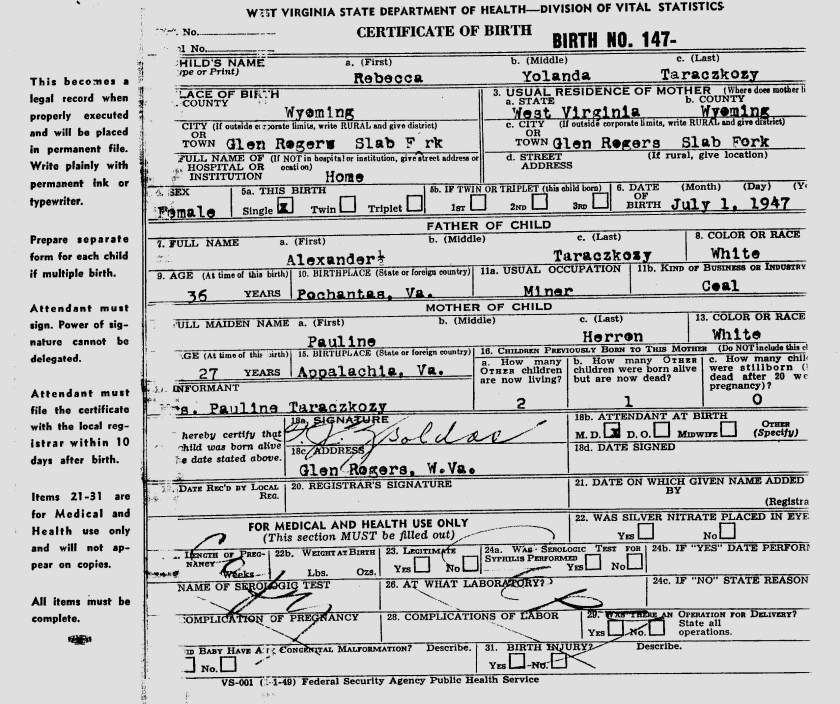 WEST VIRGINIA STATE DEPARTMENT OF HEALTH—DIVISION OF VITAL STATISTICS
CERTIFICATE OF BIRTH
BIRTH NO. 147-
No.
l No.
This becomes a
legal record when
properly executed
and will be placed
in permanent file.
Write plainly with
permanent ink or
typewriter.
Prepare separate
form for each child
if multiple birth.
Attendant must
sign. Power of sig-
nature cannot be
delegated.
Attendant must
file the certificate
with the local reg-
istrar within 10
days after birth.
Items 21-31 are
for Medical and
Health use only
and will not ap-
pear on copies.
All items must be
complete.
HILD'S NAME a. (First) b. (Middle) c. (Last)
ype or Print)
Rebecca Yolanda Taraczkozy
LACE OF BIRTH
COUNTY
Wyoming
3. USUAL RESIDENCE OF MOTHER (Where does mother li
a. STATE b. COUNTY
West Virginia Wyoming
CITY (If outside corporate limits, write RURAL and give district)
OR
TOWN Glen Rogers Slab F rk
c. CITY (If outside corporate limits, write RURAL and give district)
OR
TOWN Glen Rogers Slab Fork
FULL NAME OF (If NOT in hospital or institution, give street address or
HOSPITAL OR ocation)
INSTITUTION Home
d. STREET (If rural, give location)
ADDRESS
SEX
Female
5a. THIS BIRTH
Single Twin Triplet
5b. IF TWIN OR TRIPLET (this child born)
1ST 2ND 3RD
6. DATE (Month) (Day) (Y
OF
BIRTH July 1, 1947
FATHER OF CHILD
7. FULL NAME a. (First) b. (Middle) c. (Last)
Alexander Taraczkozy
8. COLOR OR RACE
White
9. AGE (At time of this birth)
36 YEARS
10. BIRTHPLACE (State or foreign country)
Pochantas, Va.
11a. USUAL OCCUPATION
Miner
11b. KIND OF BUSINESS OR INDUSTRY
Coal
MOTHER OF CHILD
ULL MAIDEN NAME a. (First) b. (Middle) c. (Last)
Pauline Herron
13. COLOR OR RACE
White
GE (At time of this birth)
27 YEARS
15. BIRTHPLACE (State or foreign country)
Appalachia, Va.
16. CHILDREN PREVIOUSLY BORN TO THIS MOTHER (Do NOT include this ch
a. How many
OTHER children
are now living?
2
b. How many OTHER
children were born alive
but are now dead?
1
c. How many chil
were stillborn (
dead after 20 we
pregnancy)?
0
INFORMANT
s. Pauline Taraczkozy
hereby certify that
child was born alive
e date stated above.
18a. SIGNATURE
18b. ATTENDANT AT BIRTH
M. D. D. O. MIDWIFE OTHER
(Specify)
18c. ADDRESS
Glen Rogers, W.Va.
18d. DATE SIGNED
DATE REC'D BY LOCAL
REG.
20. REGISTRAR'S SIGNATURE
21. DATE ON WHICH GIVEN NAME ADDED
BY
(Registra
FOR MEDICAL AND HEALTH USE ONLY
(This section MUST be filled out)
22. WAS SILVER NITRATE PLACED IN EYE
YES NO
LENGTH OF PREG-
NANCY
Weeks
22b. WEIGHT AT BIRTH
Lbs. Ozs.
23. LEGITIMATE
YES NO
24a. WAS SEROLOGIC TEST FOR
SYPHILIS PERFORMED
YES NO
24b. IF "YES" DATE PERFORM
NAME OF SEROLOGIC TEST
26. AT WHAT LABORATORY?
24c. IF "NO" STATE REASON
OMPLICATION OF PREGNANCY
28. COMPLICATIONS OF LABOR
29. WAS THERE AN OPERATION FOR DELIVERY?
YES NO. State all
operations.
ID BABY HAVE ANY CONGENITAL MALFORMATION? Describe.
No.
31. BIRTH INJURY? Describe.
YES NO.
VS-001 ( -1-49) Federal Security Agency Public Health Service